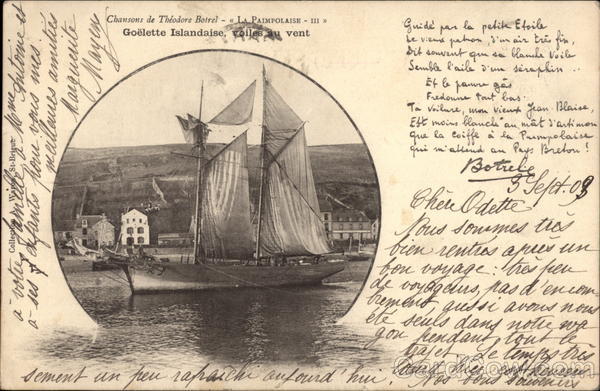 Chansons de Théodore Botrel - « LA PAIMPOLAISE - III »
Goëlette Islandaise, voiles au vent
Guidé par la petite Etoile
Le vieux patron, d'un air très fin,
Dit souvent que sa blanche Voile
Semble l'aile d'un séraphin...
Et le pauvre gâs
Fredonne tout bas :
"Ta voilure, mon vieux Jean-Blaise,
Est moins blanche, au mât d'artimon
que la coiffe à la Paimpolaise
qui m'attend au Pays Breton !
Botrel
3 Sept. 03
Chère Odette
Nous sommes très
bien rentrés après un
bon voyage : très peu
de voyageurs, pas d'encom-
brement aussi avons nous
été seuls dans notre wa
gon pendant tout le
trajet. Le temps très
sement un peu rafraîchi aujourd'hui.
Collection Waron, St-Brieuc
à votre famille à Mme Antoine et
à ses enfants pour vous mes
meilleures amitiés
Marguerite